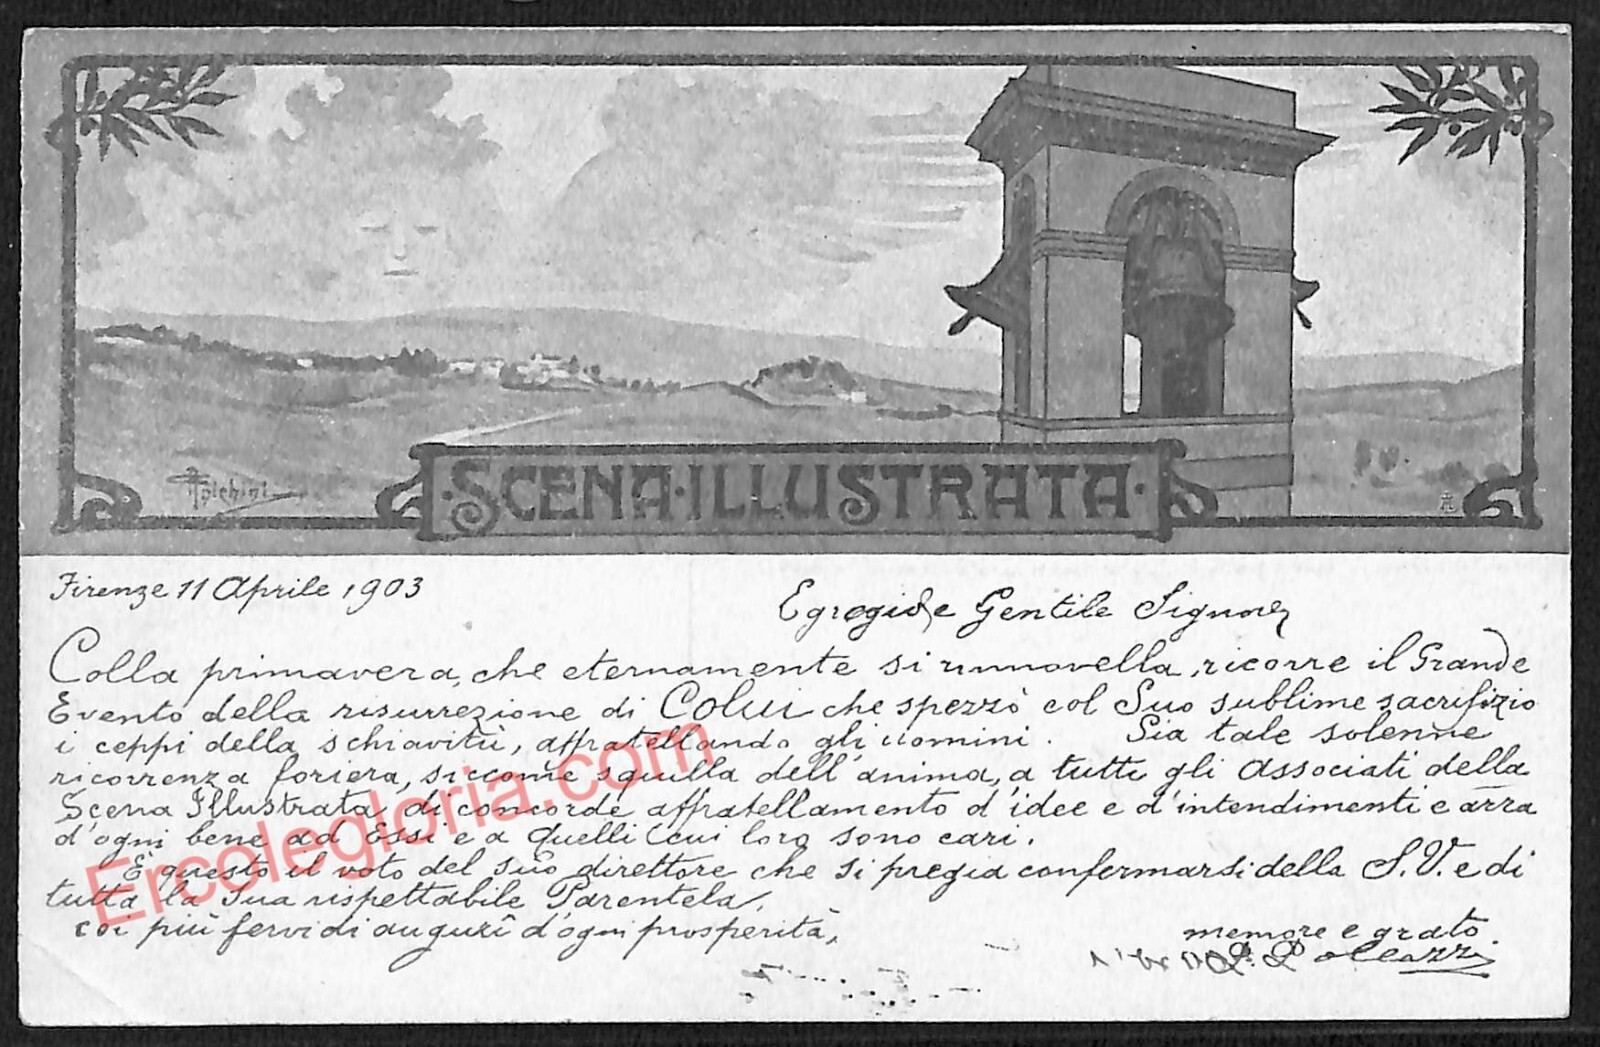 SCENA·ILLUSTRATA·
Firenze 11 Aprile 1903
Egregio e Gentile Signore
Colla primavera, che eternamente si rinnovella, ricorre il Grande
Evento della risurrezione di Colui che spezzò col Suo sublime sacrifizio
i ceppi della schiavitù, affratellando gli uomini. Sia tale solenne
ricorrenza foriera, siccome squilla dell'anima, a tutti gli Associati della
Scena Illustrata, di concorde affratellamento d'idee e d'intendimenti e arra
d'ogni bene ad Essi e a quelli cui loro sono cari.
È questo il voto del suo direttore che si pregia confermarsi della S.V. e di
tutta la Sua rispettabile Parentela,
coi più fervidi augurî d'ogni prosperità,
memore e grato
Pollazzi
Ercolegloria.com